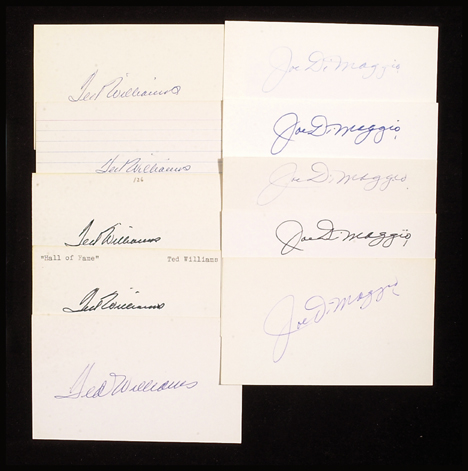 Ted Williams
Ted Williams
226
Ted Williams
"Hall of Fame" Ted Williams
Ted Williams
Ted Williams
Joe DiMaggio
Joe DiMaggio
Joe DiMaggio
Joe DiMaggio
Joe DiMaggio